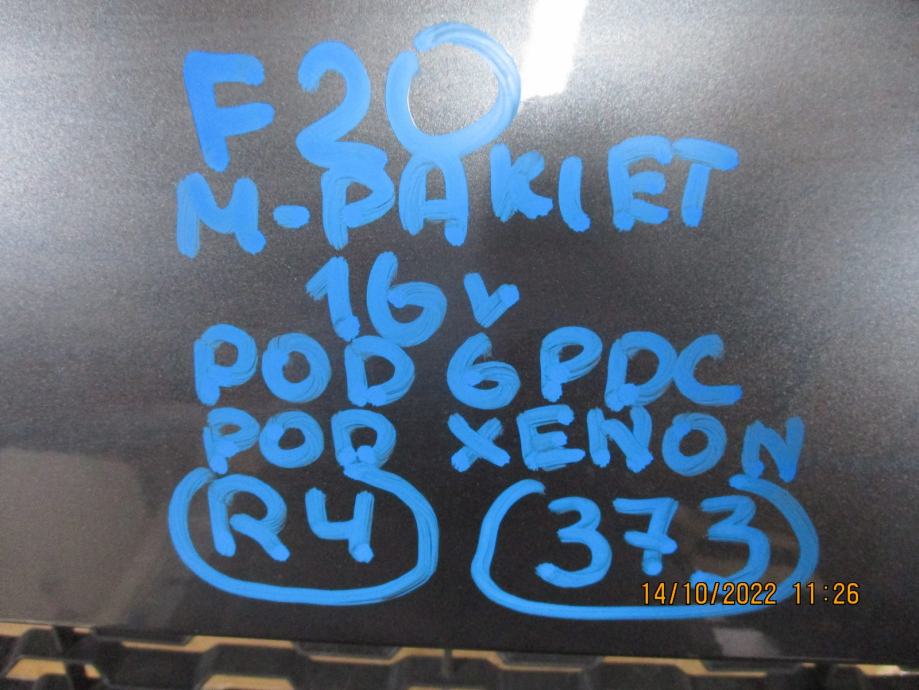 F20
M-PAKIET
16v
POD 6PDC
POD XENON
R4 373
14/10/2022 11:26